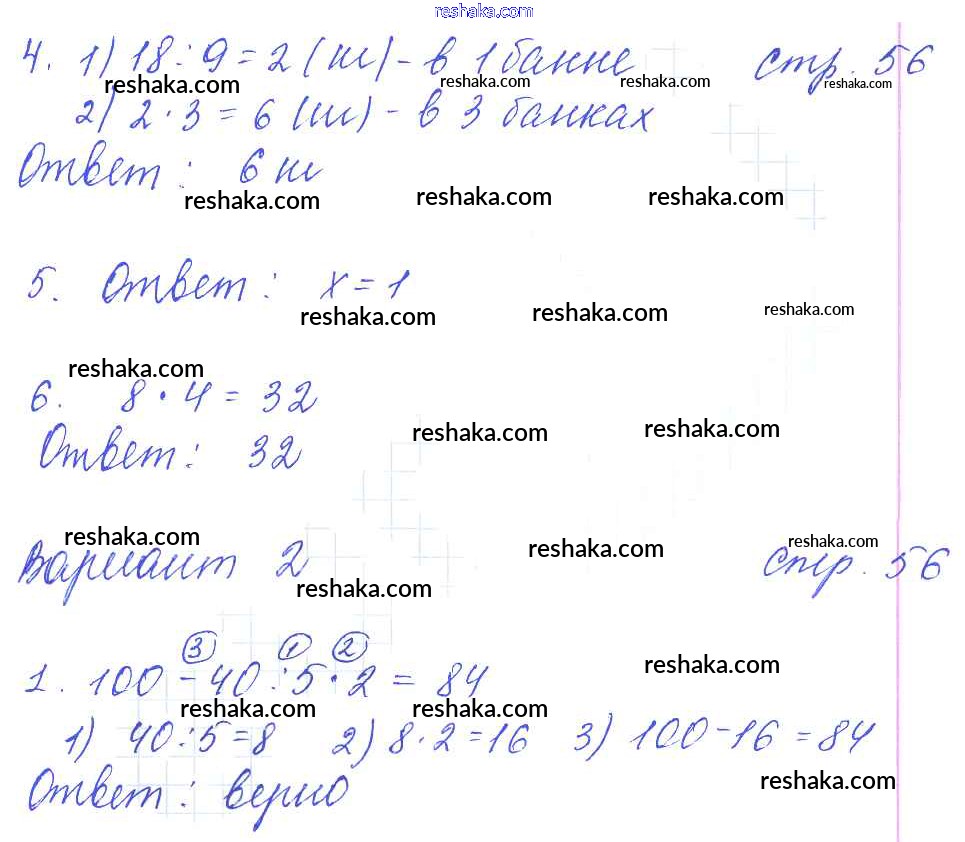 reshaka.com
4. 1) 18 : 9 = 2 (ш) - в 1 банке стр. 56
reshaka.com reshaka.com reshaka.com reshaka.com
2) 2 · 3 = 6 (ш) - в 3 банках
Ответ : 6 ш
reshaka.com reshaka.com reshaka.com
5. Ответ : x = 1
reshaka.com reshaka.com reshaka.com
reshaka.com
6. 8 · 4 = 32
reshaka.com reshaka.com
Ответ : 32
reshaka.com reshaka.com reshaka.com
Вариант 2 Стр. 56
reshaka.com
3 1 2
1. 100 - 40 : 5 · 2 = 84
reshaka.com
reshaka.com reshaka.com
1) 40 : 5 = 8 2) 8 · 2 = 16 3) 100 - 16 = 84
Ответ : верно
reshaka.com